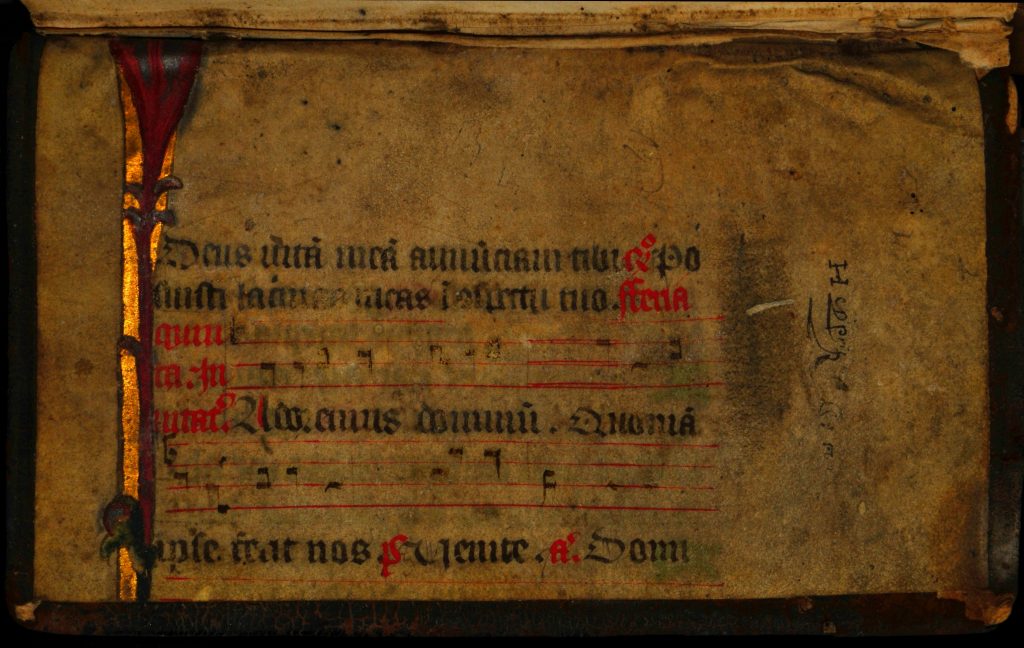 Deus vitā meā annunciavi tibi Po
suisti lacrimas meas ī ɔspectu tuo. feria
quin
ta. In
vitat Adoremus dominū. Quoniā
ipse fecit nos. ps Venite. a. Domi